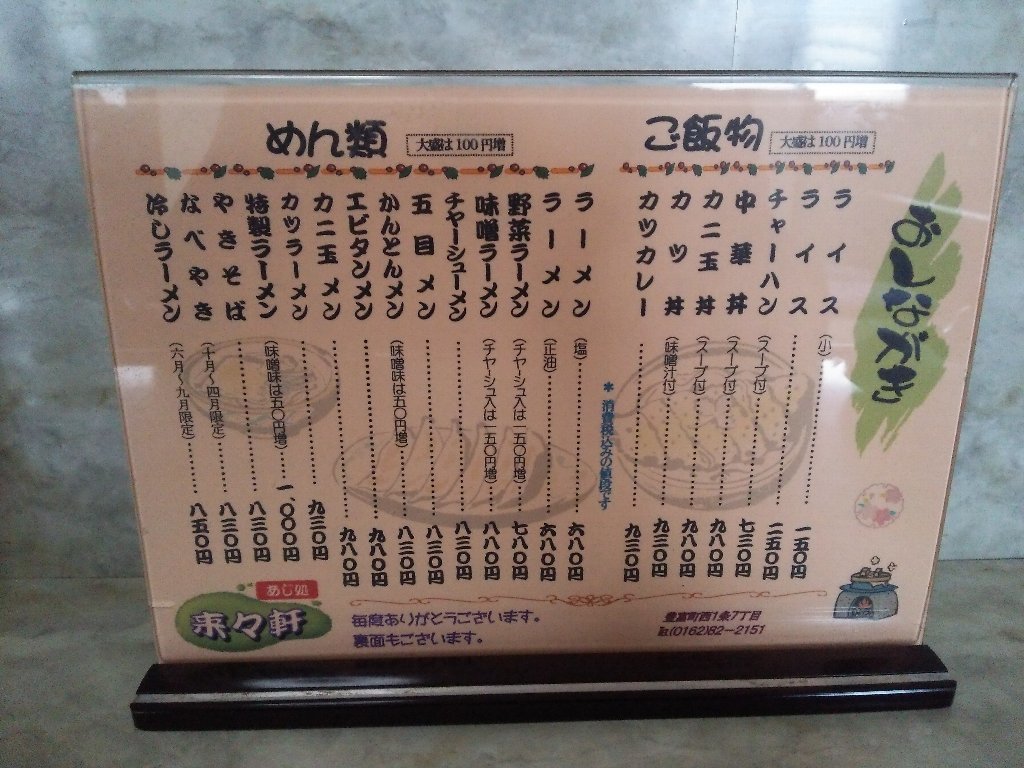 おしながき
ご飯物 大盛は100円増
ライス (小) 一五〇円
ライス 二五〇円
チャーハン (スープ付) 七三〇円
中華丼 (スープ付) 九八〇円
カニ玉丼 (スープ付) 九八〇円
カツ丼 (味噌汁付) 九三〇円
カツカレー 九三〇円
*消費税込みの値段です
めん類 大盛は100円増
ラーメン (塩) 六八〇円
ラーメン (正油) 六八〇円
野菜ラーメン (チャーシュ入は一五〇円増) 七八〇円
味噌ラーメン (チャーシュ入は一五〇円増) 八八〇円
チャーシューメン 八三〇円
五目メン 八三〇円
かんとんメン (味噌味は五〇円増) 八三〇円
エビタンメン 九八〇円
カニ玉メン 九八〇円
カツラーメン 九三〇円
特製ラーメン (味噌味は五〇円増) 一、〇〇〇円
やきそば 八三〇円
なべやき (十月〜四月限定) 八三〇円
冷しラーメン (六月〜九月限定) 八五〇円
あじ処
来々軒
毎度ありがとうございます。
裏面もございます。
豊富町西1条7丁目
℡(0162)82−2151